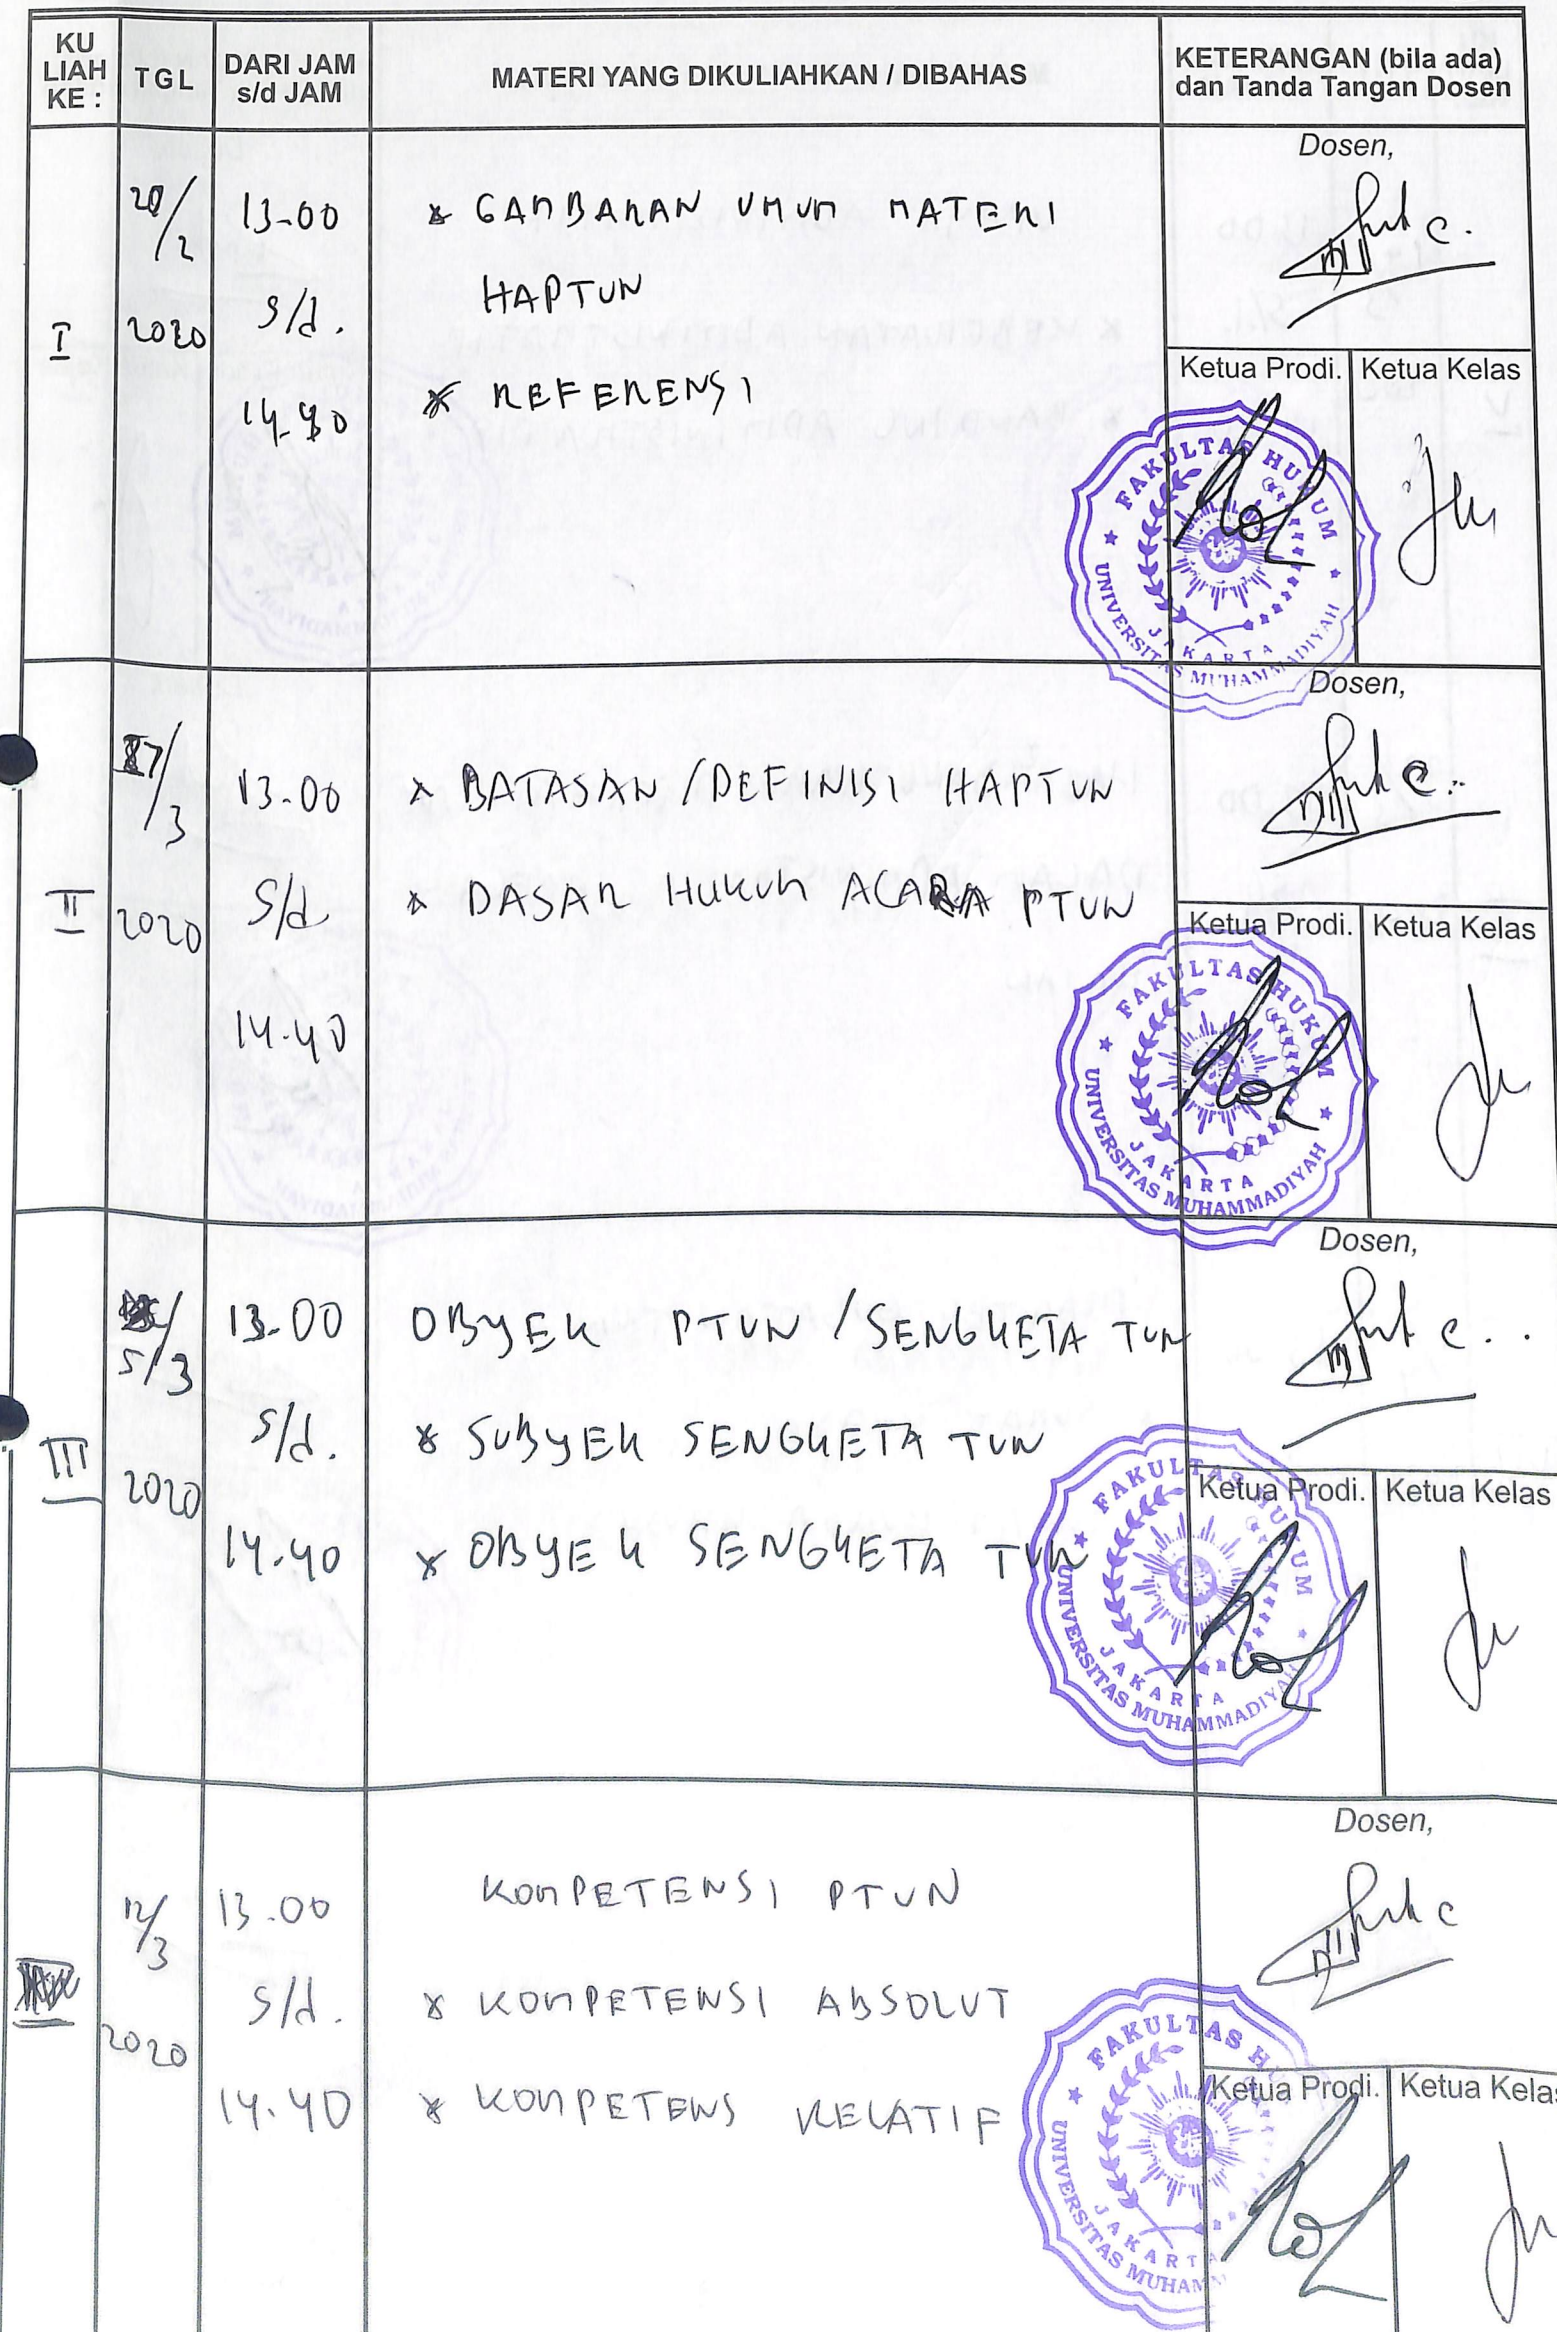 KU LIAH KE :
TGL
DARI JAM s/d JAM
MATERI YANG DIKULIAHKAN / DIBAHAS
KETERANGAN (bila ada) dan Tanda Tangan Dosen
I
2020
13-00
s/d.
* GAMBARAN UMUM MATERI
HAPTUN
* REFERENSI
Dosen,
Ketua Prodi.
Ketua Kelas
FAKULTAS HUKUM
UNIVERSITAS MUHAMMADIYAH
JAKARTA
II
2020
13-00
S/d
14-40
* BATASAN /DEFINISI HAPTUN
* DASAR HUKUM ACARA PTUN
Dosen,
Ketua Prodi.
Ketua Kelas
FAKULTAS HUKUM
UNIVERSITAS MUHAMMADIYAH
JAKARTA
III
5/3
2020
13-00
s/d.
14.40
OBYEK PTUN /SENGKETA TUN
* SUBYEK SENGKETA TUN
* OBYEK SENGKETA TUN
Dosen,
Ketua Prodi.
Ketua Kelas
FAKULTAS HUKUM
UNIVERSITAS MUHAMMADIYAH
JAKARTA
12/3
2020
13.00
s/d.
14.40
KOMPETENSI PTUN
* KOMPETENSI ABSOLUT
* KOMPETENS RELATIF
Dosen,
Ketua Prodi.
Ketua Kelas
FAKULTAS H
UNIVERSITAS MUHAM
JAKART